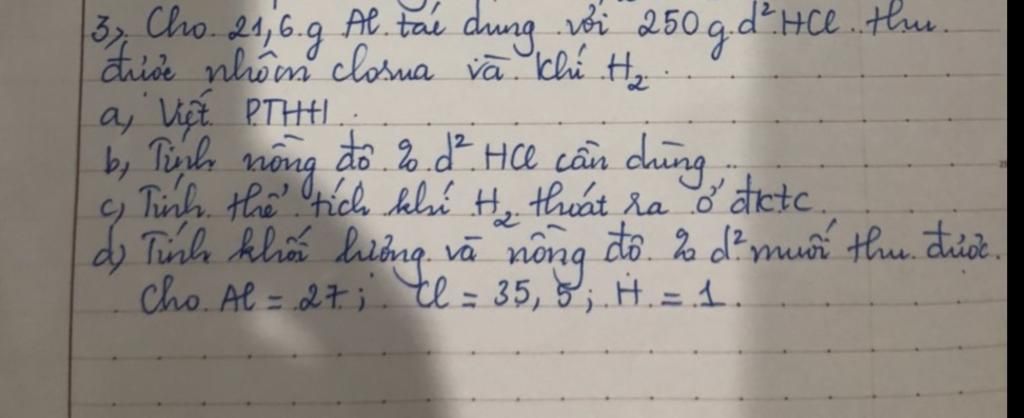 3, Cho 21,6 g Al tác dung với 250 g d² HCl thu
được nhôm clorua và khí H₂
a, Viết PTHH
b, Tính nồng độ % d² HCl cần dùng
c, Tính thể tích khí H₂ thoát ra ở đktc
d, Tính khối lượng và nồng độ % d² muối thu được.
Cho Al = 27; Cl = 35,5; H = 1